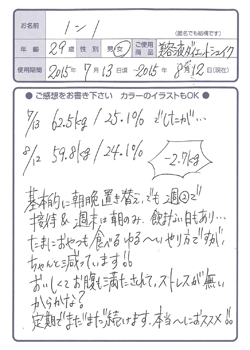 お名前
イニ1
(匿名でも結構です)
年齢 29歳 性別 男・女 ご使用商品 美容液ダイエットシェイク
使用期間 2015年7月13日頃~2015年8月12日(現在)
●ご感想をお書き下さい カラーのイラストもOK●
7/13 62.5kg / 25.1% でしたが…
8/12 59.8kg / 24.1%
-2.7kg
基本的に朝晩置き替え、でも週②で
接待&週末は朝のみ、飲まない日もあり…
たまにおやつも食べるゆる〜いやり方ですが
ちゃんと減っています!!
おいしくてお腹も満たされて、ストレスが無い
からかな?
定期でまだまだ続けます。本当〜におススメ!!